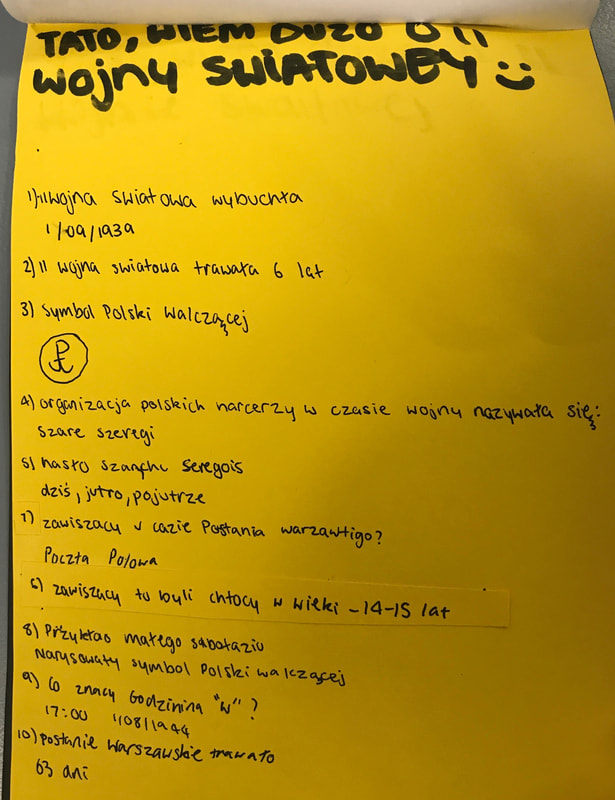 TATO, WIEM DUŻO O II
WOJNY SWIATOWEY
1) II wojna swiatowa wybuchła
1/09/1939
2) II wojna swiatowa trawała 6 lat
3) Symbol Polski walcząącej
PW
4) organizacja polskich harcerzy w czasie wojny nazywała się:
szare szeregi
5) hasło Seregois
dziś, jutro, pojutrze
7) zawiszacy v cazie Postania warzawtigo?
Poczta Polowa
6) zawiszacy to byli chłocy w wieki - 14-15 lat
8) Przykłao małego sabotaziu
Narysowały symbol Polski walczącej
9) Co znacy Godzinina "W"?
17:00 1/08/1944
10) postanie warszawskie trawało
63 dni